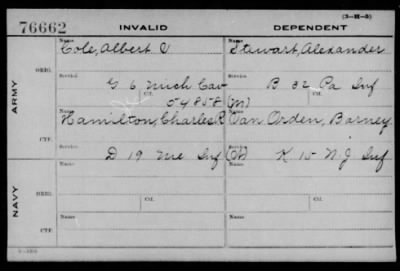 (3-H-5)
76662 INVALID DEPENDENT
Name Name
Cole, Albert C Stewart, Alexander
ORIG. Service Service
G 6 Mich Cav B 32 Pa Inf
Ctf. Ctf.
54858 (M)
ARMY
Name Name
Hamilton, Charles R Van Orden, Barney
Service Service
D 19 Me Inf (Ch) K 15 N.J Inf
NAVY
ORIG.
Ctf. Ctf.
Name Name